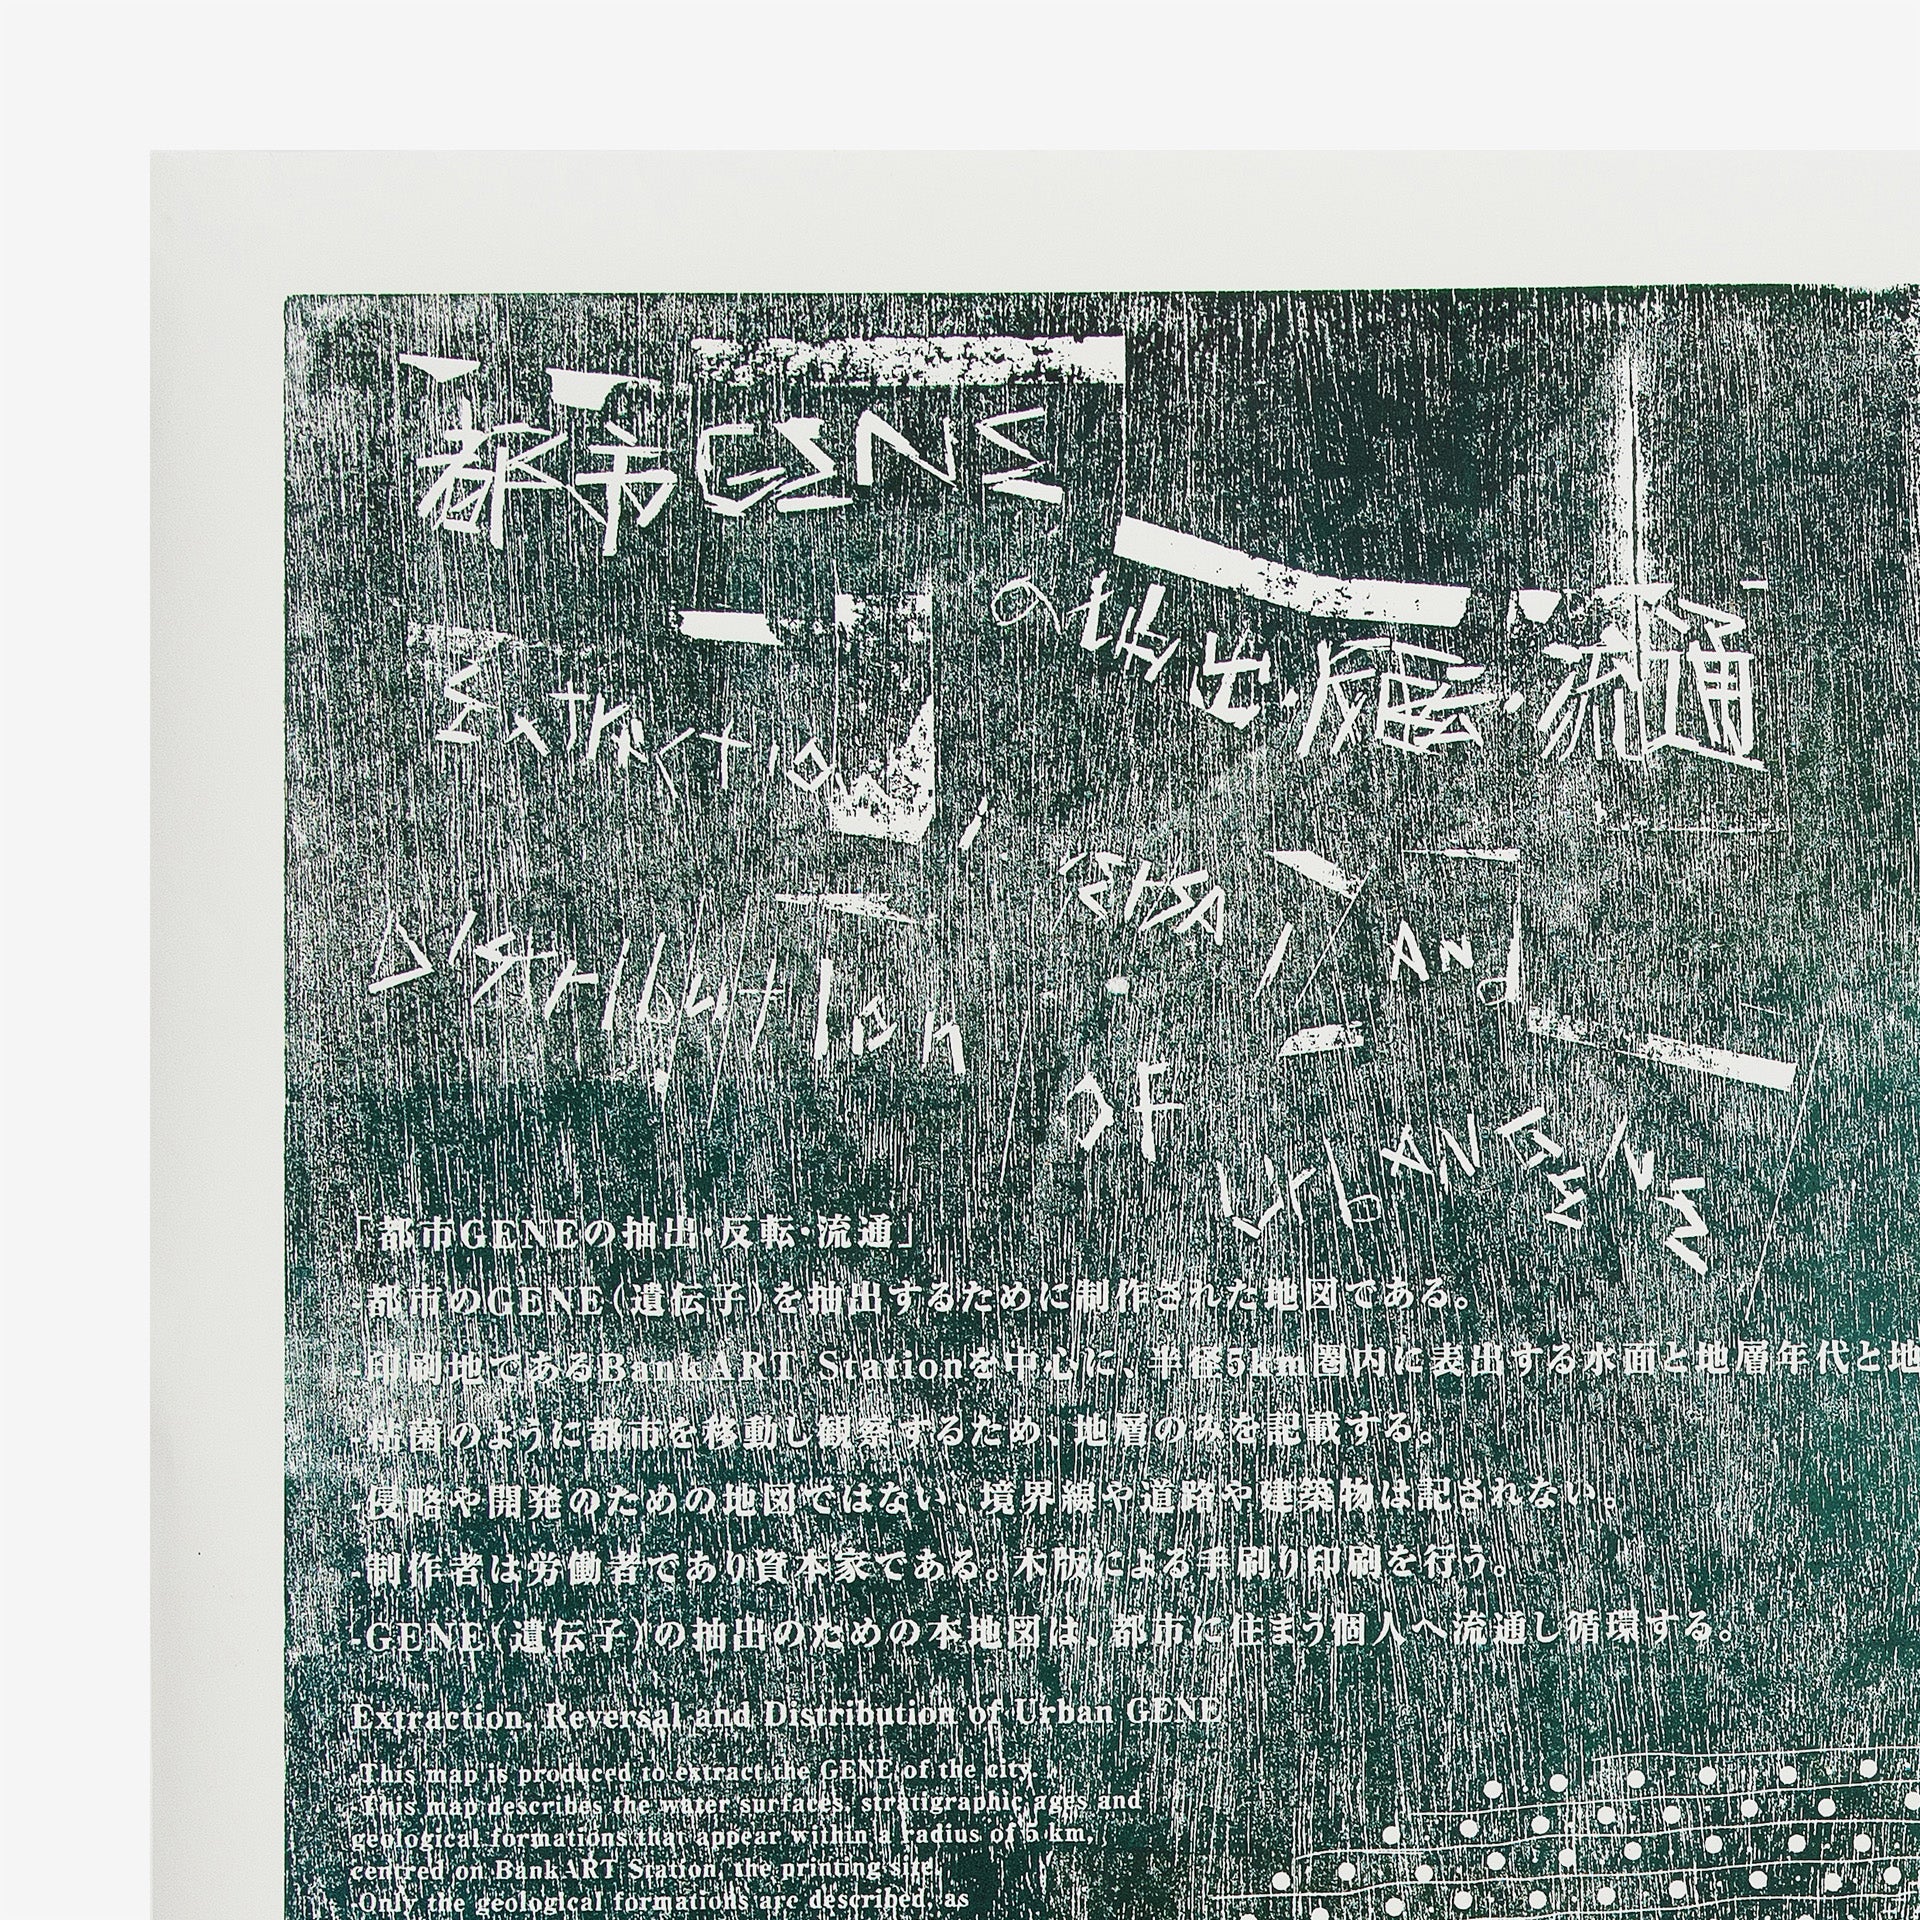 都市GENE
の抽出・反転・流通
Extraction,
Reversal And
Distribution
of
Urban GENE
「都市GENEの抽出・反転・流通」
-都市のGENE（遺伝子）を抽出するために制作された地図である。
-印刷地であるBankART Stationを中心に、半径5km圏内に表出する水面と地層年代と地
-粘菌のように都市を移動し観察するため、地層のみを記載する。
-侵略や開発のための地図ではない、境界線や道路や建築物は記されない。
-制作者は労働者であり資本家である。木版による手刷り印刷を行う。
-GENE（遺伝子）の抽出のための本地図は、都市に住まう個人へ流通し循環する。
Extraction, Reversal and Distribution of Urban GENE
-This map is produced to extract the GENE of the city.
-This map describes the water surfaces, stratigraphic ages and
geological formations that appear within a radius of 5 km,
centred on BankART Station, the printing site.
-Only the geological formations are described, as